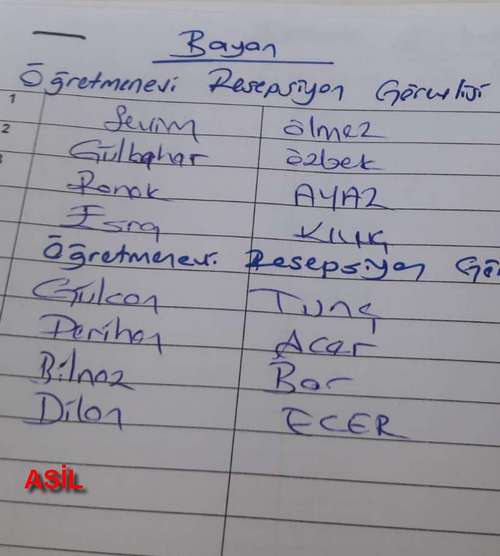 Bayan
Öğretmenevi Resepsiyon Görevlisi
1 Sevim Ölmez
2 Gülbahar Özbek
Ronak AYAZ
Esra KILIÇ
Öğretmenevi Resepsiyon Gör
Gülcan Tunç
Perihan Acar
Bilnaz Bor
Dilan ECER
ASİL